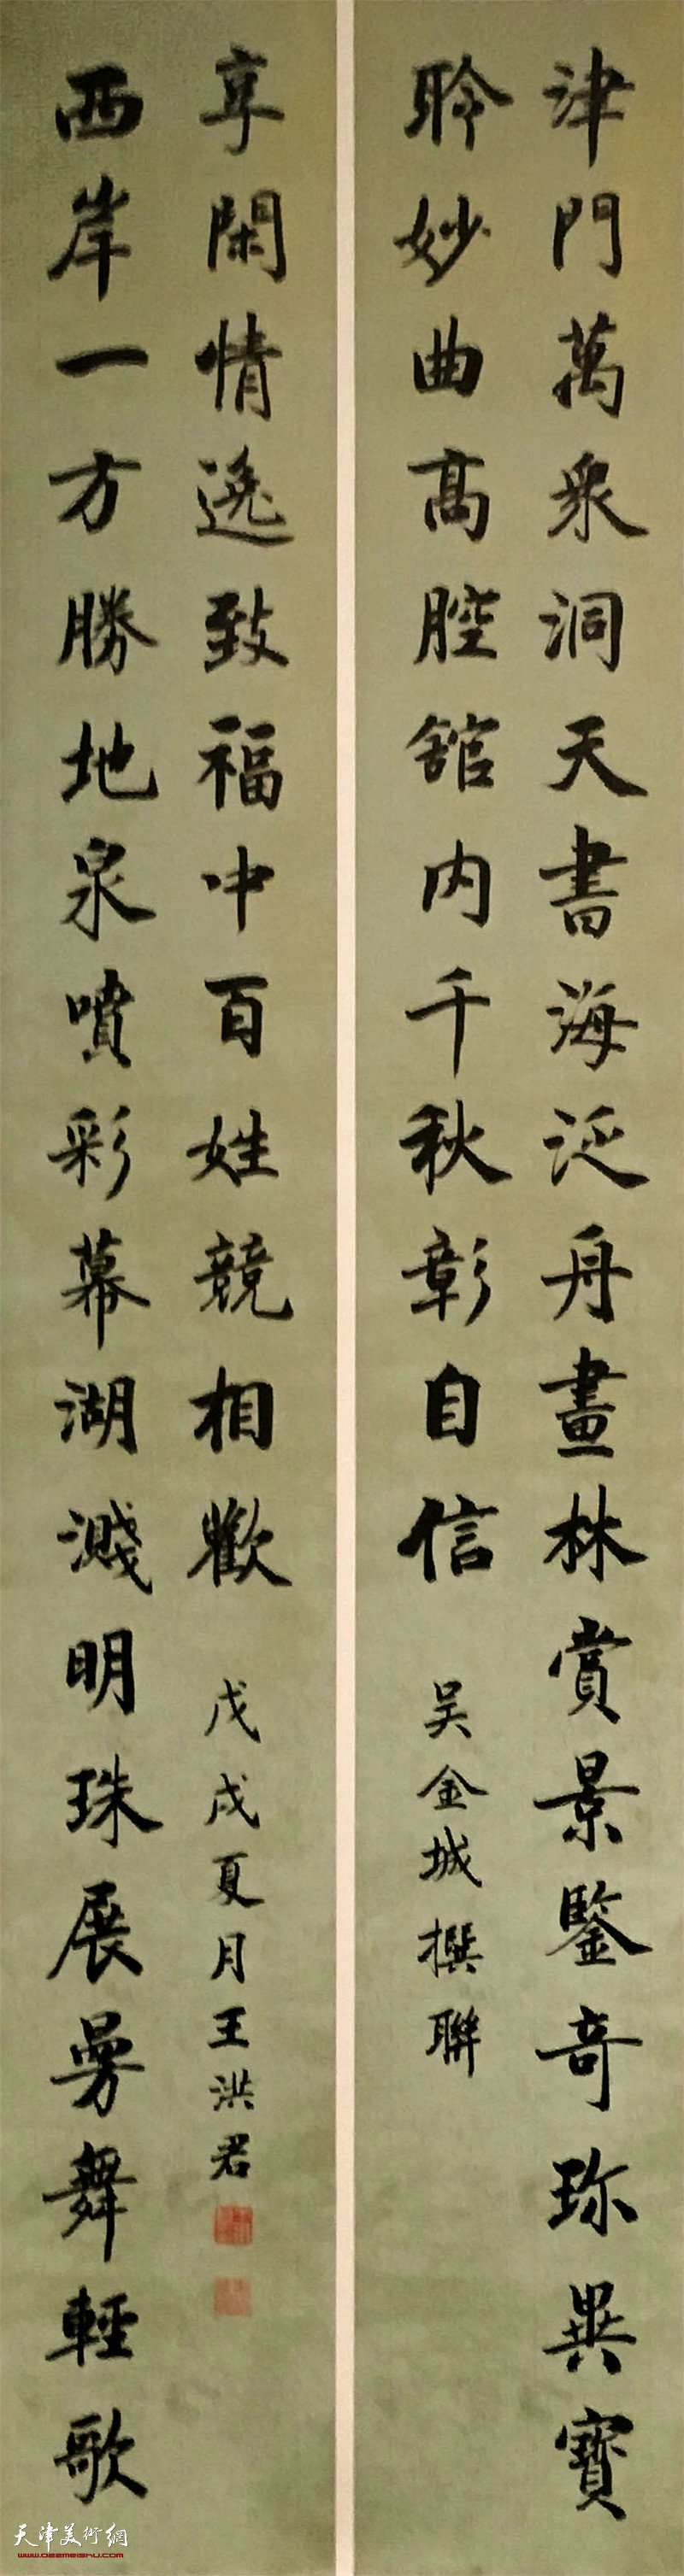 津門萬眾洞天書海泛舟畫林賞景鑒奇珍異寶
聆妙曲高腔館内千秋彰自信
吴金城撰聯
西岸一方勝地泉噴彩幕湖濺明珠展曼舞輕歌
享閑情逸致福中百姓競相歡
戊戌夏月王洪君
天津美術網
www.022meishu.com